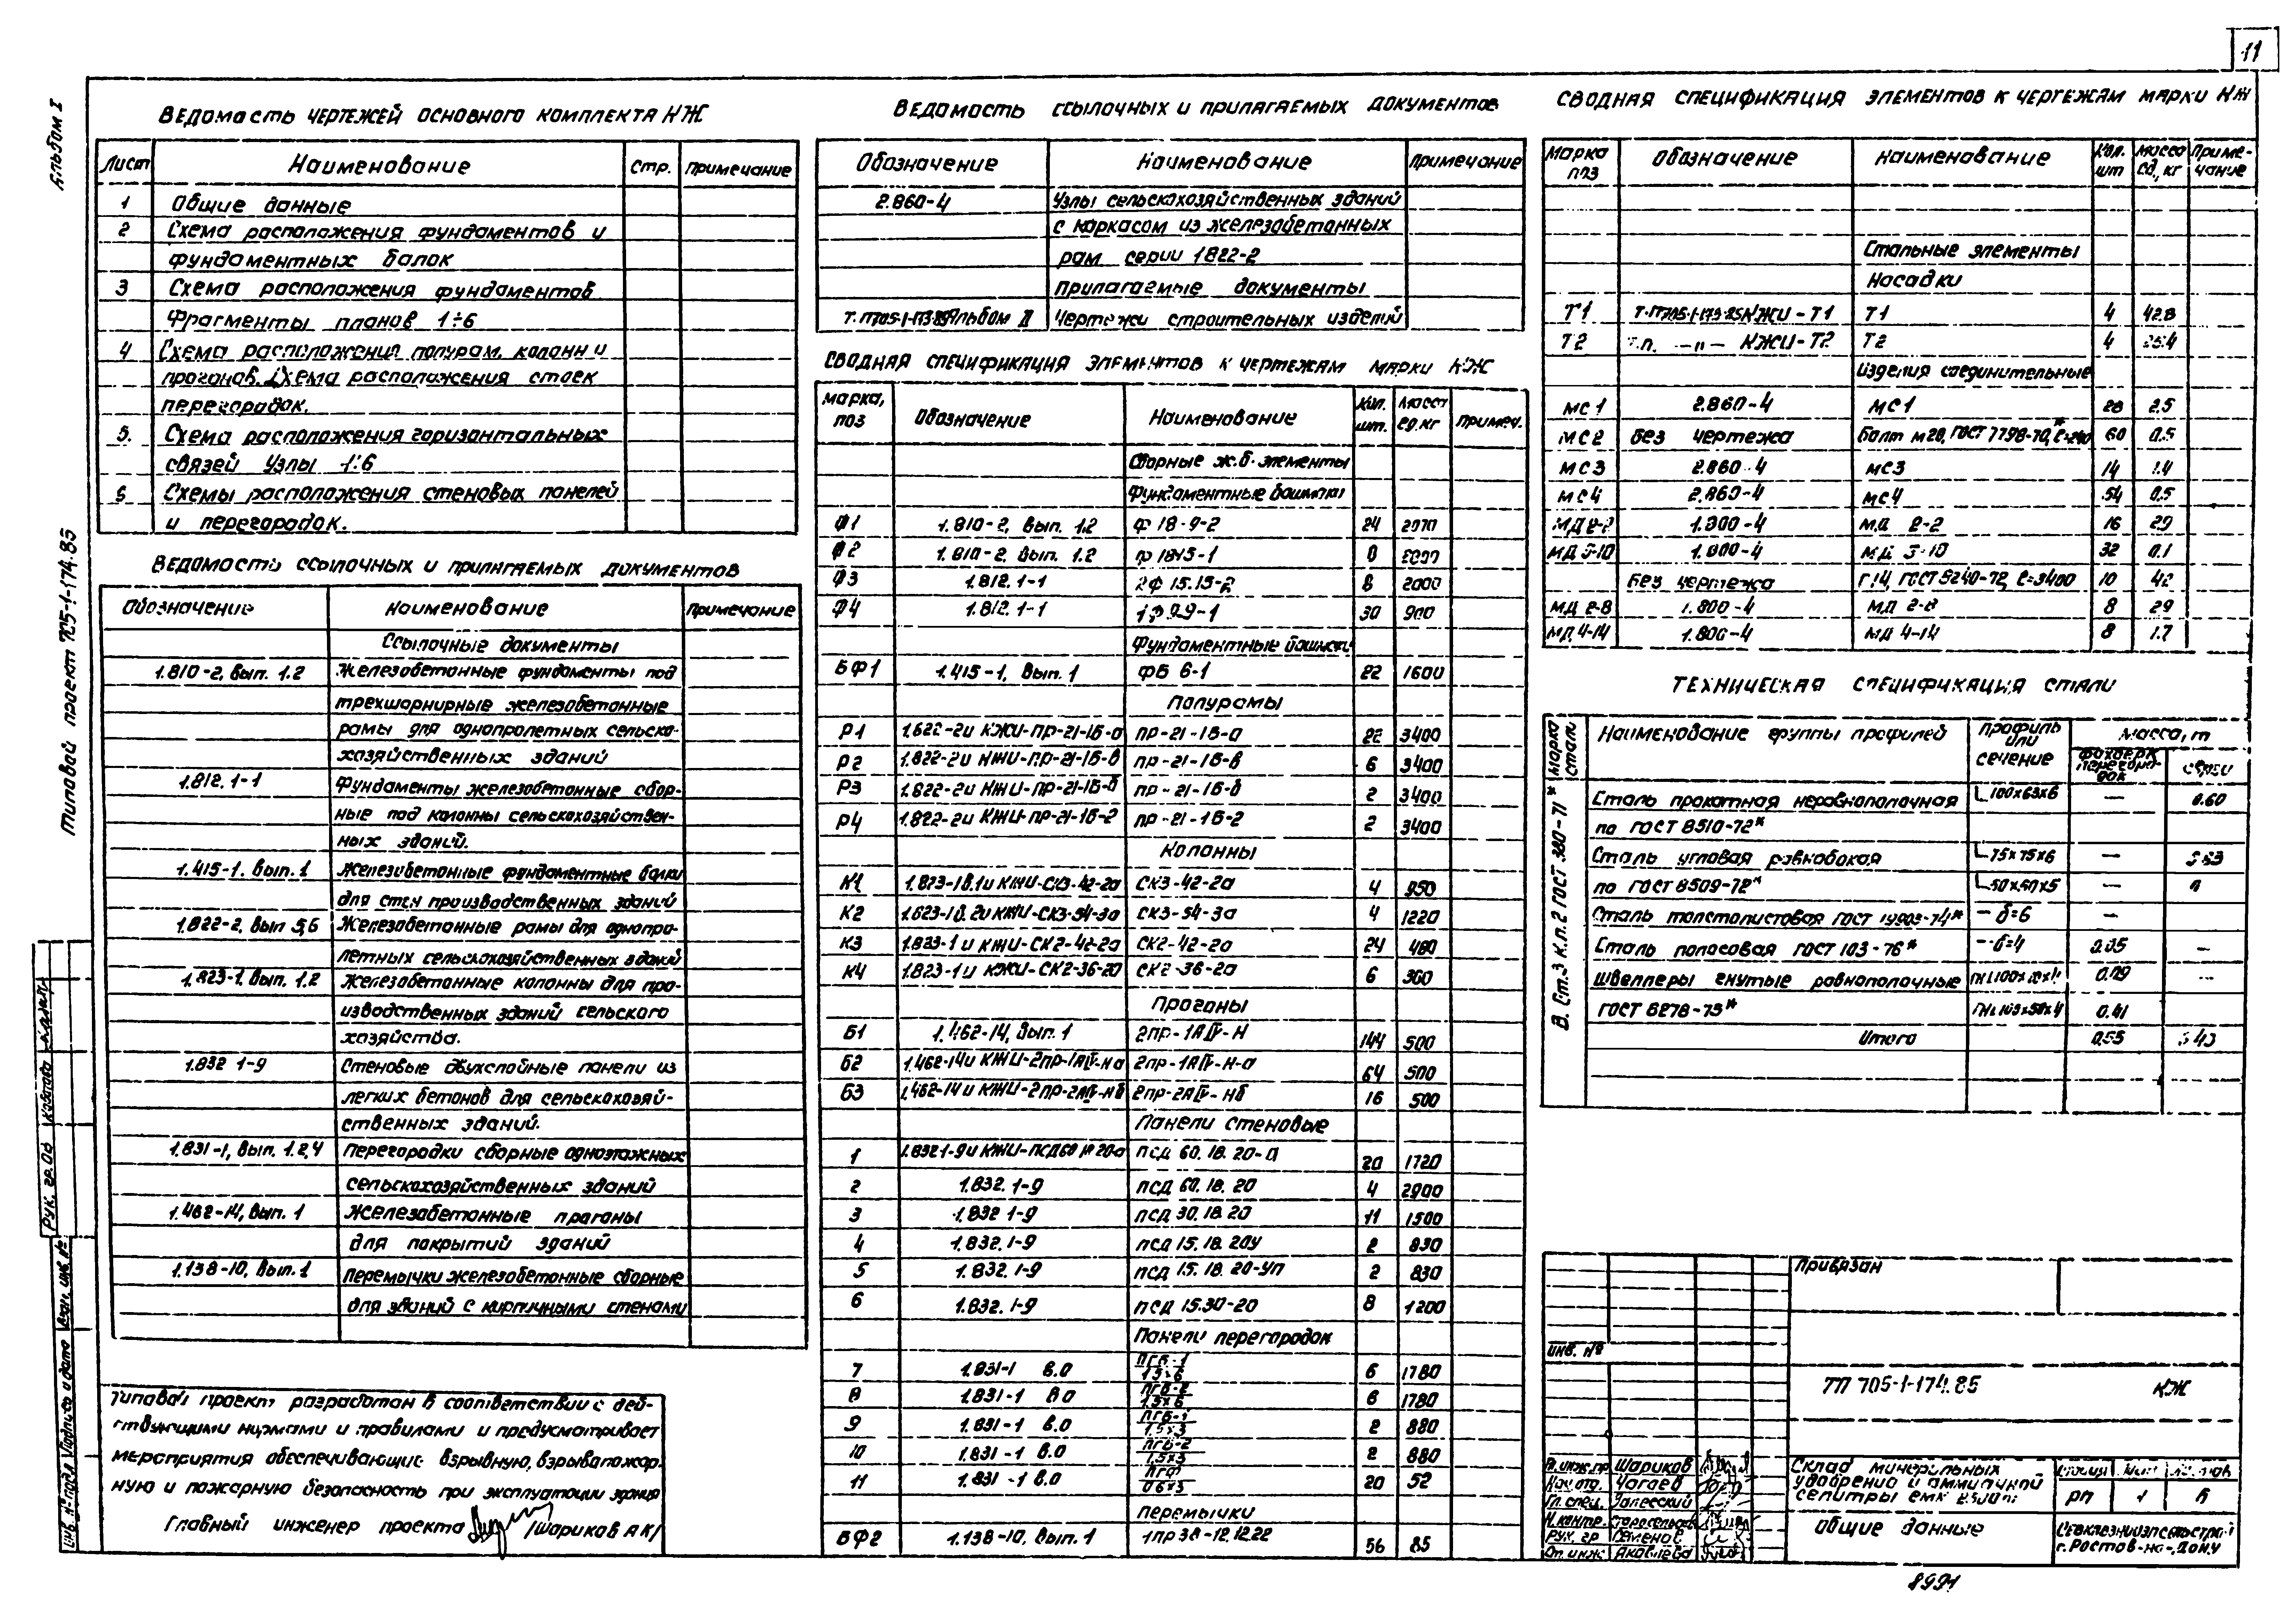 11
Альбом I
Типовой проект 705-1-174.85
Ведомость чертежей основного комплекта КЖ
Лист Наименование Стр. Примечание
1 Общие данные
2 Схема расположения фундаментов и
фундаментных балок
3 Схема расположения фундаментов
Фрагменты планов 1÷6
4 Схема расположения полурам, колонн и
прогонов. Схема расположения стоек
перегородок.
5. Схема расположения горизонтальных
связей Узлы 1÷6
6 Схемы расположения стеновых панелей
и перегородок.
Ведомость ссылочных и прилагаемых документов
Обозначение Наименование Примечание
Ссылочные документы
1.810-2, вып. 1.2 Железобетонные фундаменты под
трехшарнирные железобетонные
рамы для однопролетных сельско-
хозяйственных зданий
1.812.1-1 Фундаменты железобетонные сбор-
ные под колонны сельскохозяйствен-
ных зданий.
1.415-1. вып. 1 Железобетонные фундаментные балки
для стен производственных зданий
1.822-2, вып 5,6 Железобетонные рамы для однопро-
летных сельскохозяйственных зданий
1.823-1. вып. 1.2 Железобетонные колонны для про-
изводственных зданий сельского
хозяйства.
1.832 1-9 Стеновые двухслойные панели из
легких бетонов для сельскохозяй-
ственных зданий.
1.831-1, вып. 1.2,4 Перегородки сборные одноэтажных
сельскохозяйственных зданий
1.462-14, вып. 1 Железобетонные прогоны
для покрытий зданий
1.138-10, вып. 1 Перемычки железобетонные сборные
для зданий с кирпичными стенами
Типовой проект разработан в соответствии с дей-
ствующими нормами и правилами и предусматривает
мероприятия обеспечивающие взрывную, взрывопожар-
ную и пожарную безопасность при эксплуатации здания
Главный инженер проекта /Шариков А К/
Ведомость ссылочных и прилагаемых документов
Обозначение Наименование Примечание
2.860-4 Узлы сельскохозяйственных зданий
с каркасом из железобетонных
рам серии 1822-2
прилагаемые документы
Альбом II Чертежи строительных изделий
Сводная спецификация элементов к чертежам марки КЖ
Марка, поз Обозначение Наименование Кол. шт. Масса ед.кг Примеч.
Сборные ж.б. элементы
Фундаментные башмаки
Ф1 1.810-2, вып. 1.2 Ф 18-9-2 24 2070
Ф2 1.810-2, вып. 1.2 8
Ф3 1.812.1-1 2Ф 15.15-2 8 2000
Ф4 1.812.1-1 1Ф 9.9-1 30 900
Фундаментные башмаки
БФ1 1.415-1, вып. 1 ФБ 6-1 22 1600
Полурамы
Р1 1.822-2и КЖИ-ПР-21-1Б-а ПР-21-1Б-а 22 3400
Р2 1.822-2и КЖИ-ПР-21-1Б-в ПР-21-1Б-в 6 3400
Р3 1.822-2и КЖИ-ПР-21-1Б-б ПР-21-1Б-б 2 3400
Р4 1.822-2и КЖИ-ПР-21-1Б-г ПР-21-1Б-г 2 3400
Колонны
К1 1.823-1в.1и КЖИ-СК3-42-2а СК3-42-2а 4 950
К2 1.823-1в.2и КЖИ-СК3-54-3а СК3-54-3а 4 1220
К3 1.823-1 и КЖИ-СК2-42-2а СК2-42-2а 24 480
К4 1.823-1 и КЖИ-СК2-36-2а СК2-36-2а 6 360
Прогоны
Б1 1.462-14, вып. 1 2ПР-1АIV-Н 144 500
Б2 1.462-14и КЖИ-2ПР-1АIV-На 2ПР-1АIV-Н-а 64 500
Б3 1.462-14 и КЖИ-2ПР-2АIV-Нб 2ПР-2АIV-Нб 16 500
Панели стеновые
1 ПСД 60.18.20-а 20 1720
2 1.832.1-9 ПСД 60.18.20 4 2900
3 1.832 1-9 ПСД 30.18 20 11 1500
4 1.832.1-9 ПСД 15.18.20У 2 830
5 1.832.1-9 ПСД 15.18.20-УП 2 830
6 1.832.1-9 ПСД 15.30-20 8 1200
Панели перегородок
7 1.831-1 в.0 ПГБ-1 1.5×6 6 1780
8 1.831-1 в.0 ПГБ-2 1.5×6 6 1780
9 1.831-1 в.0 ПГБ-1 1.5×3 2 880
10 1.831-1 в.0 ПГБ-2 1.5×3 2 880
11 1.831-1 в.0 0.6×3 20 52
Перемычки
БФ2 1.138-10, вып. 1 1ПР 38-12.12.22 56 85
Сводная спецификация элементов к чертежам марки КЖ
Марка поз Обозначение Наименование Кол. шт Масса ед., кг Приме-чание
Стальные элементы
Насадки
Т1 КЖИ-Т1 Т1 4 42.8
Т2 Т.п. —"— КЖИ-Т2 Т2 4
Изделия соединительные
МС1 2.860-4 МС1 28 2.5
МС2 Без чертежа Болт М20, ГОСТ 7798-70,* ℓ=240 60 0.5
МС3 2.860-4 МС3 14 1.4
МС4 2.860-4 МС4 54 0.5
МД 2-2 1.800-4 МД 2-2 16 29
МД 5-10 1.800-4 МД 5-10 32 0.1
Без чертежа Г14, ГОСТ 8240-72, ℓ=3400 10 42
МД 2-8 1.800-4 МД 2-8 8 29
МД 4-14 1.800-4 МД 4-14 8 1.7
Техническая спецификация стали
Марка стали Наименование группы профилей Профиль или сечение Масса, т
Фахверк перегородок связи
В. Ст.3 к.п.2 ГОСТ 380-71*
Сталь прокатная неравнополочная ∟100×63×6 — 0.60
по ГОСТ 8510-72*
Сталь угловая равнобокая ∟75×75×6 —
по ГОСТ 8509-72* ∟50×50×5 —
Сталь толстолистовая ГОСТ 19903-74* – δ=6 —
Сталь полосовая ГОСТ 103-76* – δ=4 0.05 —
Швеллеры гнутые равнополочные 0.09 —
ГОСТ 8278-75* 0.41
Итого 0.55
Привязан
Инв. №
ТП 705-1-174.85 КЖ
Гл. инж. пр Шариков
Нач. отд. Чагаев
Гл. спец. Залесский
Н. контр. Старосельская
Рук. гр Семенов
Ст. инж Яковлева
Склад минеральных
удобрений и аммиачной
селитры емк.
Стадия Лист Листов
РП 1 6
Общие данные
г. Ростов-на-Дону
8991
Рук. гр. Об
Инв. № подл Подпись и дата Взам. инв. №